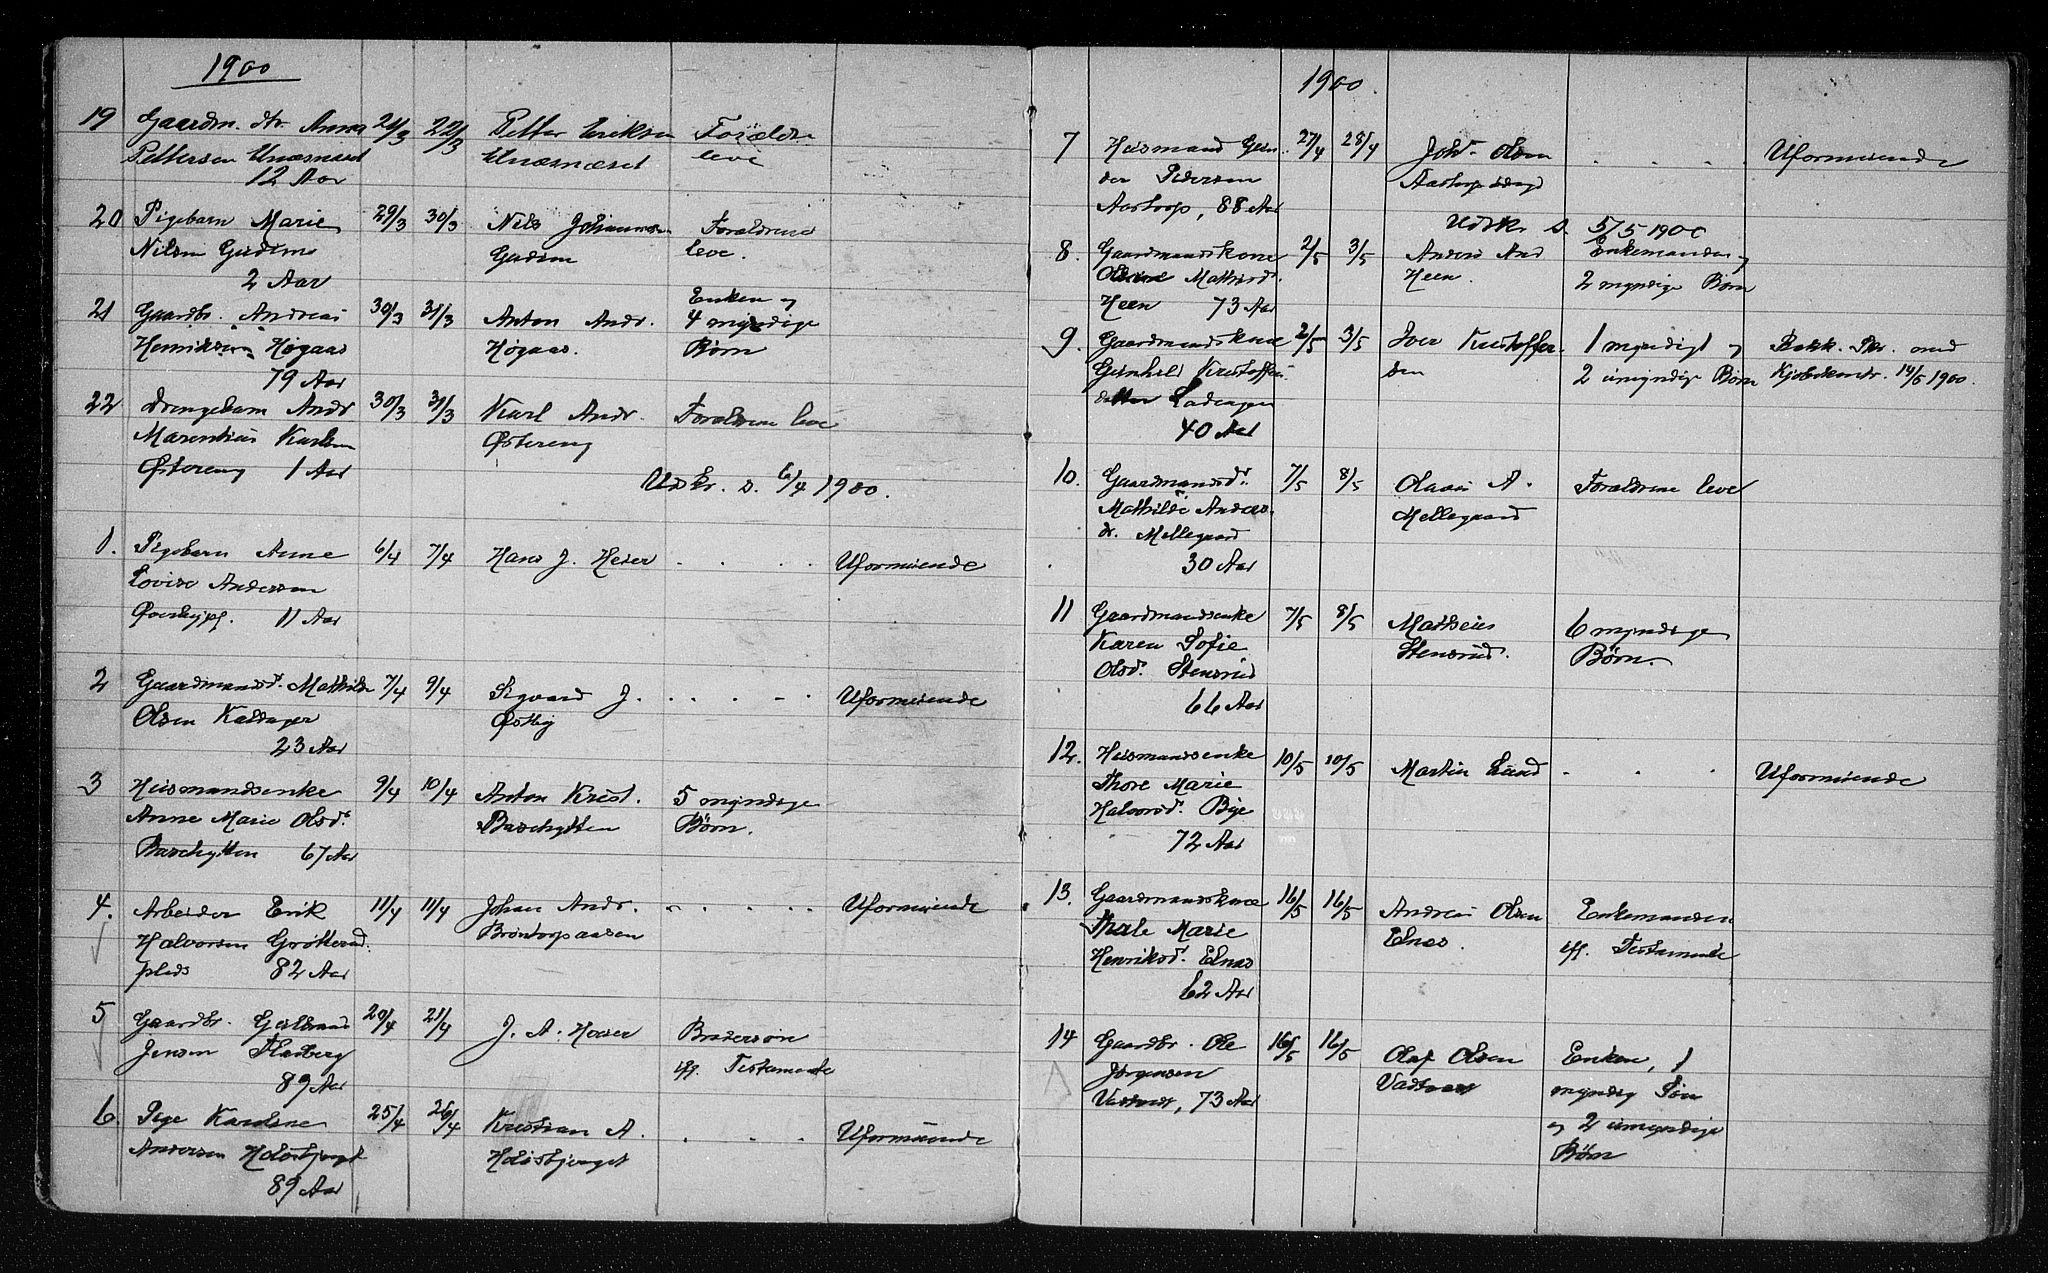 1900
19 Gaardm. dtr. Anna 21/3 22/3 Petter Eriksen Forældr.
Pettersen Unæsnæset Unæsnæset leve
12 Aar
20 Pigebarn Marie 29/3 30/3 Nils Johannesen Forældrene
Nilsen Gudim Gudim leve.
2 Aar
21 Gaardbr. Andreas 30/3 31/3 Anton Andr. Enken og 4 myndige
Henriksen Høgaas Høgaas. Børn
79 Aar
22 Drengebarn Andr 30/3 31/3 Karl Andr. Forældrene leve
Marentius Karlsen Østereng
Østereng 1 Aar
Udskr. d. 6/4 1900.
1. Pigebarn Anne 6/4 7/4 Hans J. Heier . . . . Uformuende
Lovise Andersen
11 Aar
2 Gaardmandsd. Mathilde 7/4 9/4 Sigvard J. . . . . . Uformuende
Olsen Kaldager Østby
23 Aar
3 Husmandsenke 9/4 10/4 Anton Krist. 5 myndige
Anne Marie Olsd. Baschytten Børn.
Baschytten 67 Aar
4. Arbeider Erik 11/4 11/4 Johan Andr. . . . . . Uformuende
Halvorsen Grøtterud Brøntorpaasen
plads 82 Aar
5 Gaardbr. Gulbrand 20/4 21/4 J. A. Hoier Brodersøn
Jensen Flasberg iflg. Testamente
89 Aar
6. Pige Karoline 25/4 26/4 Kristian A. . . . . Uformuende
Andersen Holosbjerget Holosbjerget
89 Aar
1900
7 Husmand Gun 27/4 28/4 Johs. Olsen . . . . Uformuende
der Pedersen Aastorp
Aastorp, 88 Aar
Udskr. d. 5/5 1900
8. Gaardmandskone 2/5 3/5 Anders And Enkemanden og
Oline Mathisd. Heen. 2 myndige Børn
Heen 73 Aar
9. Gaardmandskone 2/5 3/5 Iver Kristoffer- 1 myndigt og med
Gunhild Kristoffers sen 2 umyndige Børn 14/5 1900.
datter Ladengen
40 Aar
10. Gaardmandsd. 7/5 8/5 Olaus A. Forældrene leve
Mathilde Anders- Mellegaard
dr. Mellegaard
30 Aar
11 Gaardmandsenke 7/5 8/5 Matheus 6 myndige
Karen Sofie Stensrud. Børn.
Olsd. Stensrud
66 Aar
12. Husmandsenke 10/5 10/5 Martin Lund . . . Uformuende
Thore Marie
Halvorsd. Bye
72 Aar
13. Gaardmandskone 16/5 16/5 Andreas Olsen Enkemanden
Thale Marie Elnæs. iflg. Testamente
Henriksd. Elnæs
62 Aar
14 Gaardbr. Ole 16/5 16/5 Olaf Olsen Enken, 1
Jørgensen myndig Søn
73 Aar og 2 umyndige
Børn